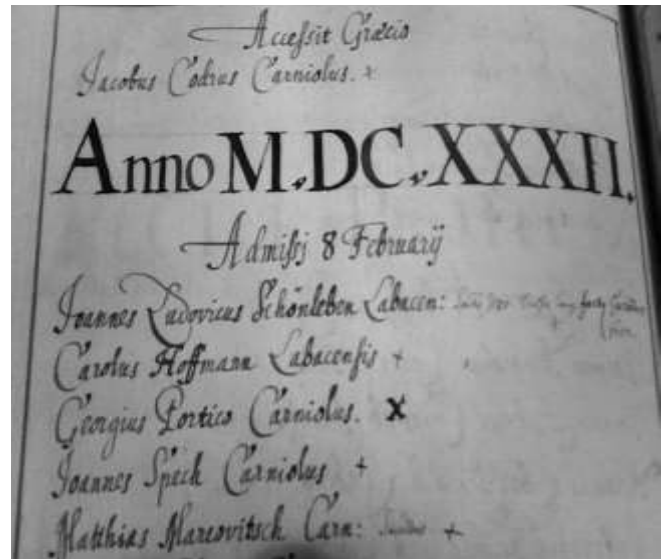 Accessit Græcio
Jacobus Codrus Carniolus. +
Anno M.DC.XXXII.
Admissj 8 Februarij
Joannes Ludovicus Schönleben Labacen:
Carolus Hoffmann Labacensis +
Georgius Portico Carniolus. X
Joannes Speck Carniolus +
Matthias Marcovitsch Carn: +